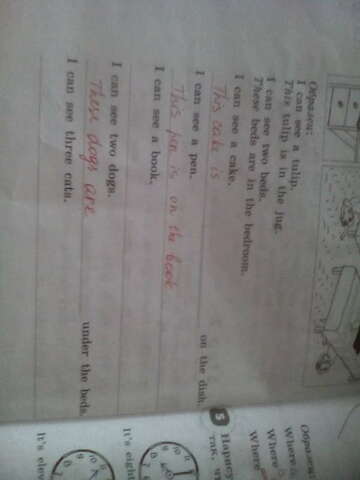 Образец:
I can see a tulip.
This tulip is in the jug.
I can see two beds.
These beds are in the bedroom.
I can see a cake.
This cake is on the dish.
I can see a pen.
This pen is on the book
I can see a book.
I can see two dogs.
These dogs are under the beds.
I can see three cats.
5
Where
Where
Where
It's eight
It's elev